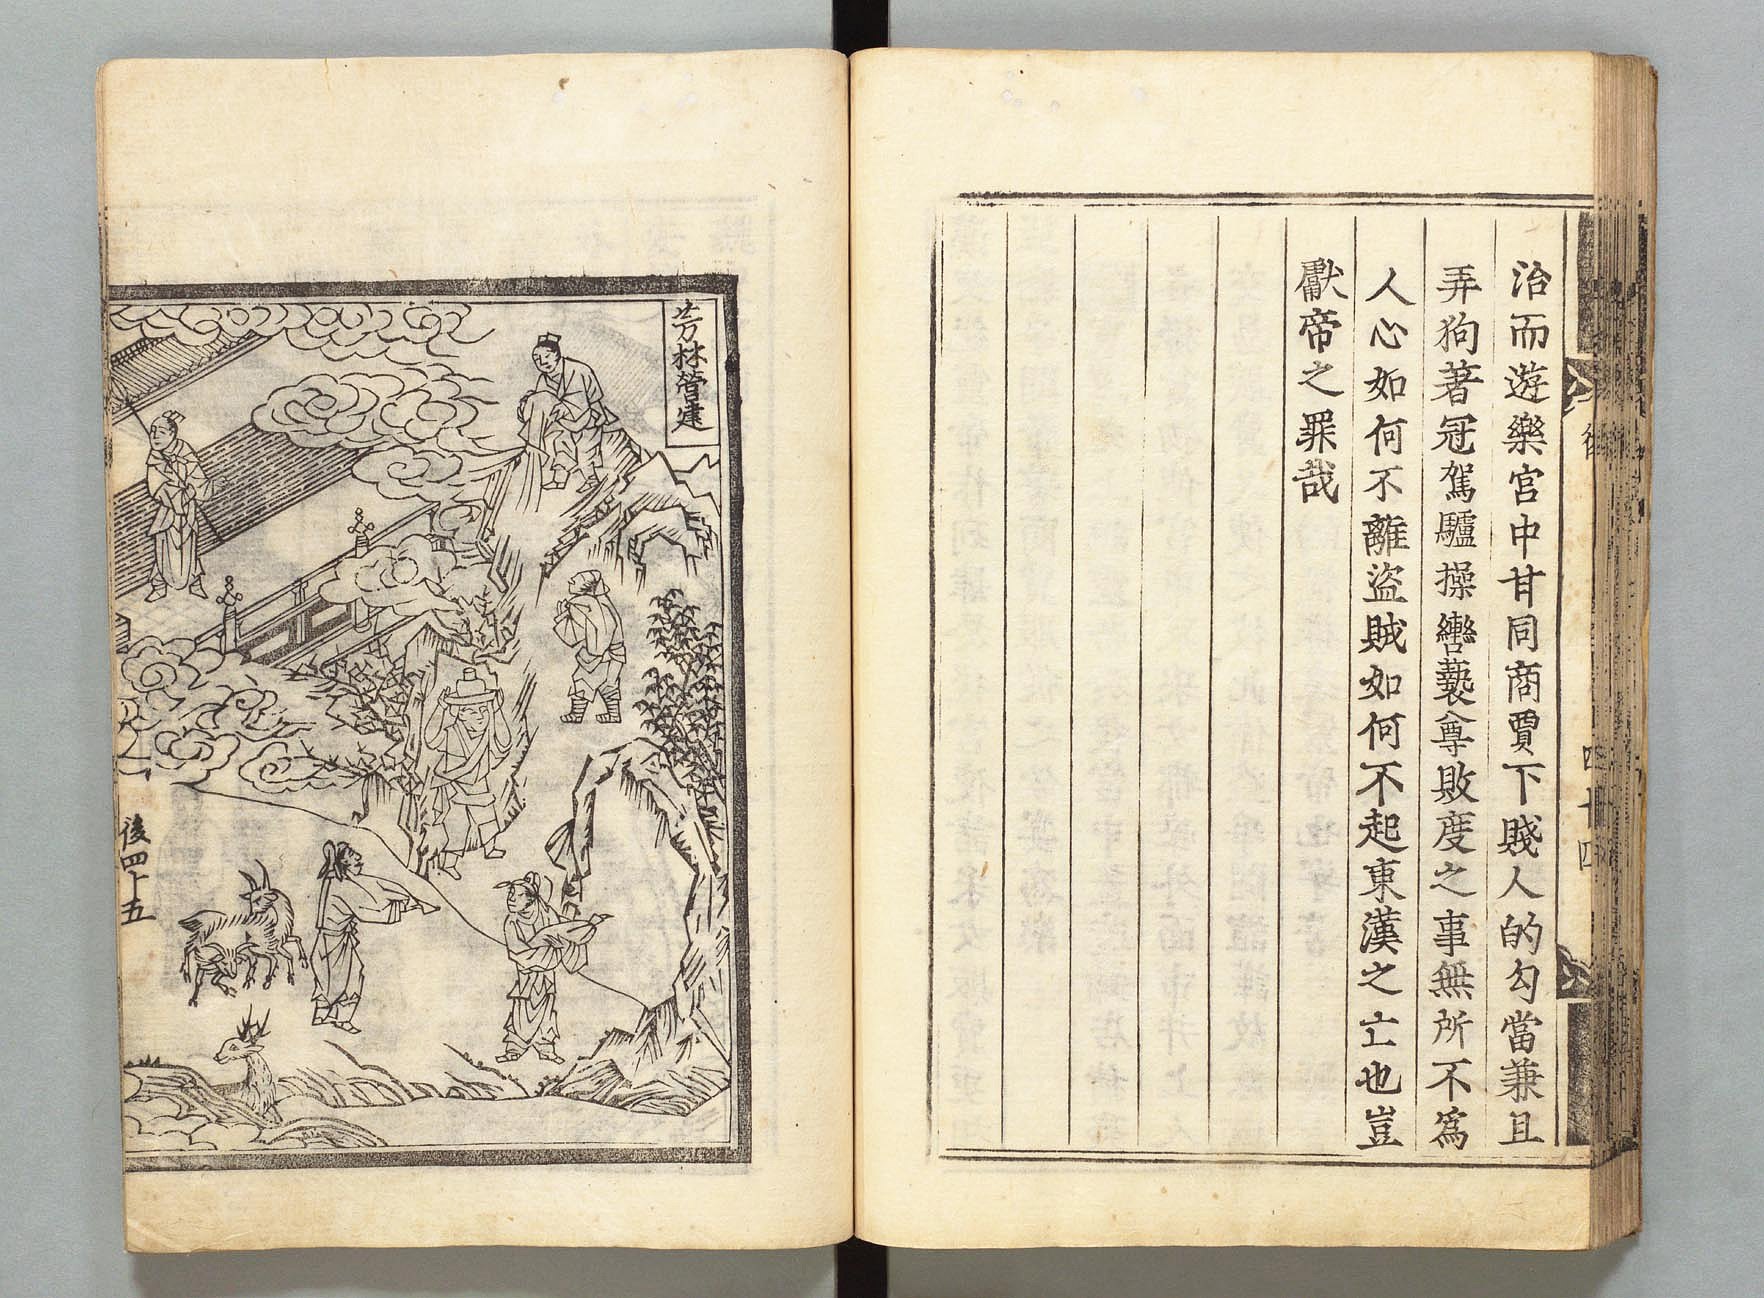 治而遊樂宮中甘同商賈下賤人的勾當兼且
弄狗著冠駕驢操轡褻尊敗度之事無所不為
人心如何不離盜賊如何不起東漢之亡也豈
獻帝之罪哉
四十四
芳林營建
後四十五